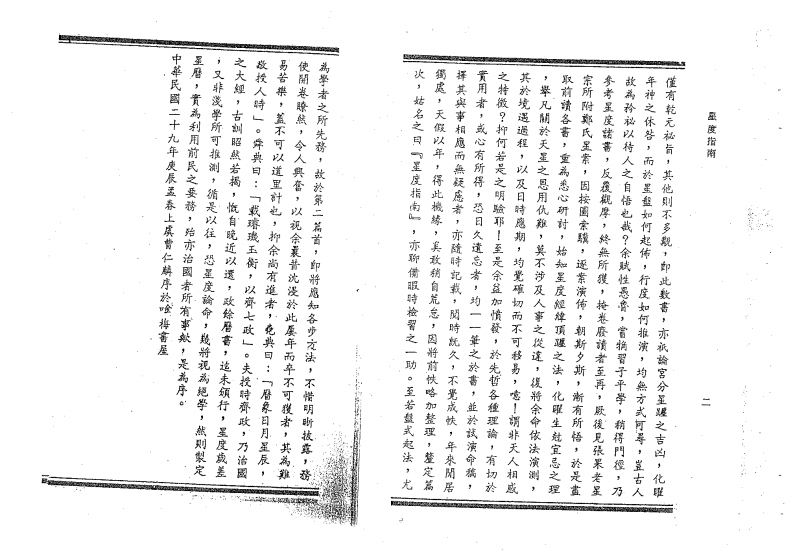 星度指南
二
僅有乾元秘旨，其他則不多覯，即此數書，亦祇論宮分星躔之吉凶，化曜
年神之休咎，而於星盤如何起佈，行度如何推演，均無方式可尋，豈古人
故為矜祕以待人之自悟也哉？余賦性愚魯，嘗稍習子平學，稍得門徑，乃
參考星度諸書，反覆觀摩，終無所獲，掩卷廢讀者至再，厥後見張果老星
宗所附鄭氏星案，因按圖索驥，逐案演佈，朝斯夕斯，漸有所悟，於是盡
取前讀各書，重為悉心研討，始知星度經緯頂躔之法，化曜生尅宜忌之理
，舉凡關於天星之恩用仇難，莫不涉及人事之從違，復將余命依法演測，
其於境遇過程，以及日時應期，均覺確切而不可移易，噫！謂非天人相感
之特徵？抑何若是之明驗耶！至是余益加憤發，於先哲各種理論，有切於
實用者，或心有所得，恐日久遺忘者，均一一筆之於書，並於試演命稿，
擇其與事相應而無疑慮者，亦隨時記載，閱時既久，不覺成帙，年來閑居
獨處，天假以年，得此機緣，奚敢稍自荒怠，因將前帙略加整理，釐定篇
次，姑名之曰『星度指南』，亦聊備暇時檢習之一助。至若盤式起法，尤
為學者之所先務，故於第二篇首，即將應知各步方法，不惜明晰披露，務
使開卷瞭然，令人興奮，以視余曩昔沈浸於此屢年而卒不可獲者，其為難
易苦樂，蓋不可以道里計也，抑余尚有進者，堯典曰：「曆象日月星辰，
敬授人時」。舜典曰：「載璿璣玉衡，以齊七政」。夫授時齊政，乃治國
之大經，古訓昭然若揭，慨自晚近以還，政餘曆書，迄未頒行，星度歲差
，又非淺學所可推測，循是以往，恐星度論命，幾將視為絕學，然則製定
星曆，實為利用前民之要務，殆亦治國者所有事歟，是為序。
中華民國二十九年庚辰孟春上虞曹仁麟序於唫梅書屋